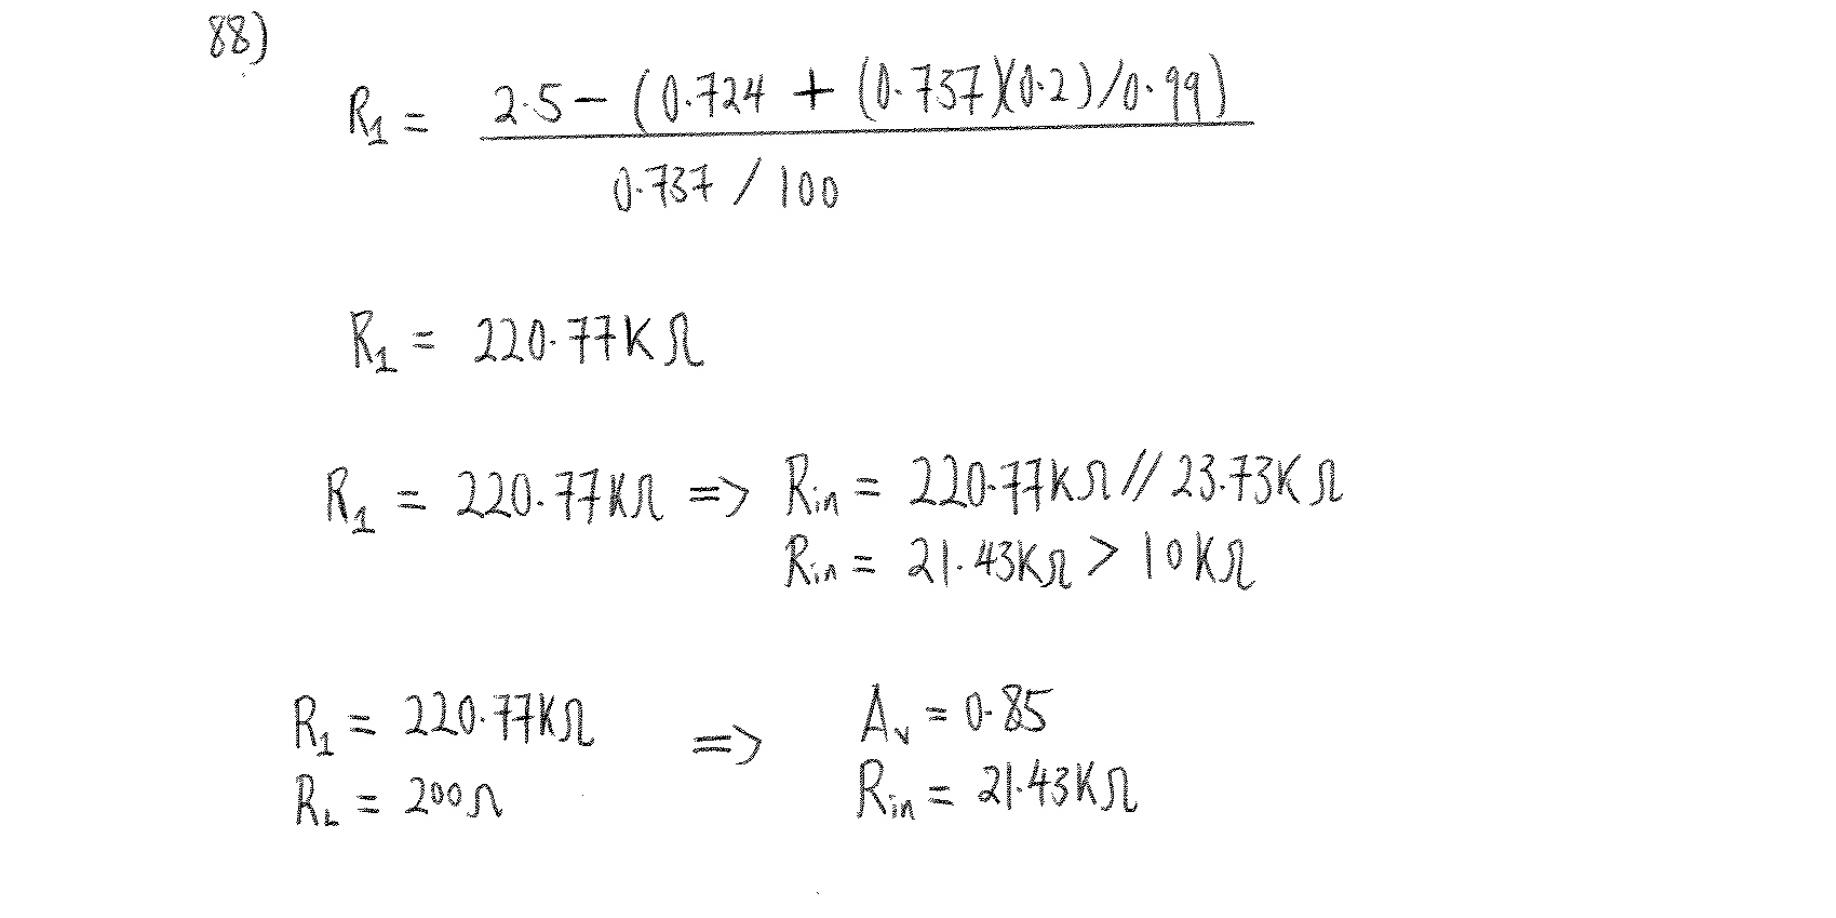 88)
R₁ = 2.5 − (0.724 + (0.737)(0.2)/0.99)
0.737 / 100
R₁ = 220.77KΩ
R₁ = 220.77KΩ => Rin = 220.77KΩ // 23.73KΩ
Rin = 21.43KΩ > 10KΩ
R₁ = 220.77KΩ => Av = 0.85
RL = 200Ω Rin = 21.43KΩ